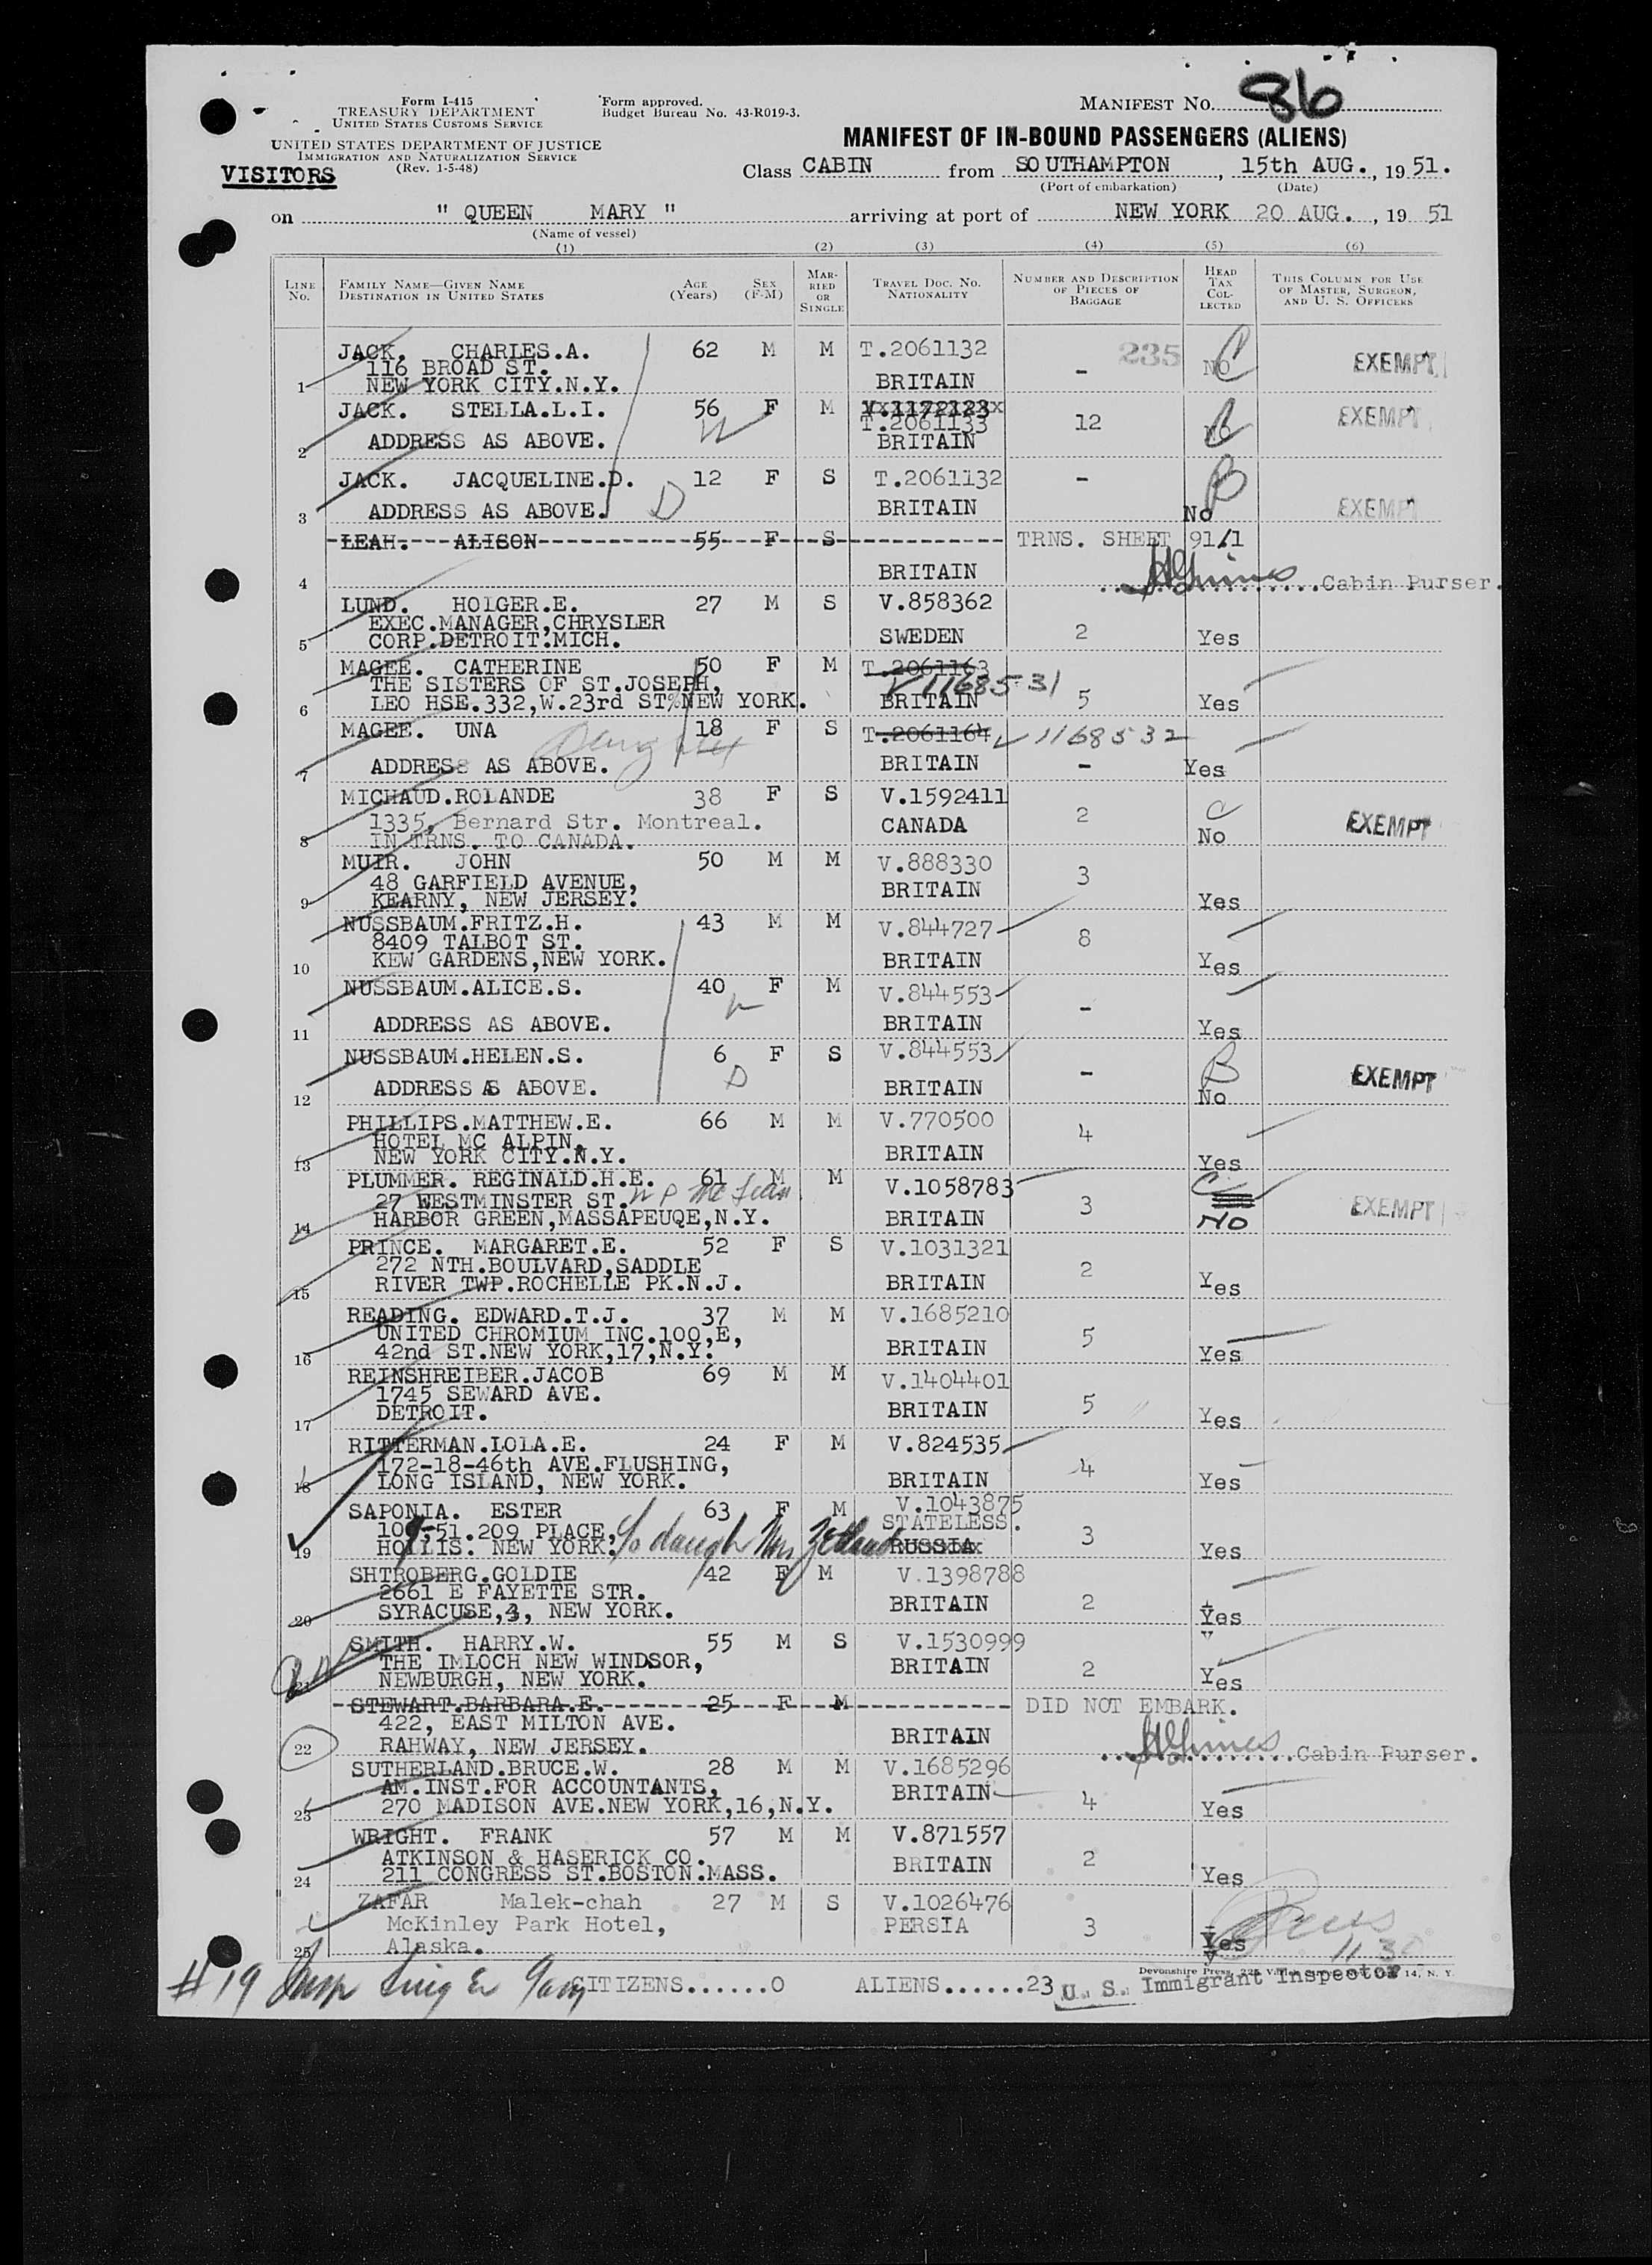 Form I-415
TREASURY DEPARTMENT
UNITED STATES CUSTOMS SERVICE
UNITED STATES DEPARTMENT OF JUSTICE
IMMIGRATION AND NATURALIZATION SERVICE
(Rev. 1-5-48)
VISITORS
Form approved.
Budget Bureau No. 43-R019-3.
MANIFEST NO. 86
MANIFEST OF IN-BOUND PASSENGERS (ALIENS)
Class CABIN from SOUTHAMPTON, 15th AUG., 1951.
(Port of embarkation) (Date)
on " QUEEN MARY " arriving at port of NEW YORK 20 AUG., 19 51
(Name of vessel)
(1) (2) (3) (4) (5) (6)
LINE No. FAMILY NAME—GIVEN NAME DESTINATION IN UNITED STATES AGE (Years) SEX (F-M) MARRIED OR SINGLE TRAVEL DOC. NO. NATIONALITY NUMBER AND DESCRIPTION OF PIECES OF BAGGAGE HEAD TAX COLLECTED THIS COLUMN FOR USE OF MASTER, SURGEON, AND U. S. OFFICERS
JACK. CHARLES.A. 62 M M T.2061132 235 C
116 BROAD ST. - No EXEMPT
1 NEW YORK CITY.N.Y. BRITAIN
JACK. STELLA.L.I. 56 F M V.1172123
W T.2061133 12 No EXEMPT
2 ADDRESS AS ABOVE. BRITAIN
JACK. JACQUELINE.D. 12 F S T.2061132 - B
3 ADDRESS AS ABOVE. D BRITAIN No EXEMPT
LEAH. ALISON 55 F S TRNS. SHEET 91/1
4 BRITAIN Cabin Purser.
LUND. HOLGER.E. 27 M S V.858362
EXEC.MANAGER,CHRYSLER
5 CORP.DETROIT.MICH. SWEDEN 2 Yes
MAGEE. CATHERINE 50 F M T.2061163
THE SISTERS OF ST.JOSEPH, V1168531
6 LEO HSE.332,W.23rd ST%NEW YORK. BRITAIN 5 Yes
MAGEE. UNA 18 F S T.2061164 V1168532
Daughter
7 ADDRESS AS ABOVE. BRITAIN - Yes
MICHAUD.ROLANDE 38 F S V.1592411
1335, Bernard Str. Montreal. CANADA 2 C
8 IN TRNS. TO CANADA. No EXEMPT
MUIR. JOHN 50 M M V.888330
48 GARFIELD AVENUE, BRITAIN 3
9 KEARNY, NEW JERSEY. Yes
NUSSBAUM.FRITZ.H. 43 M M V.844727
8409 TALBOT ST. 8
10 KEW GARDENS,NEW YORK. BRITAIN Yes
NUSSBAUM.ALICE.S. 40 F M V.844553
W -
11 ADDRESS AS ABOVE. BRITAIN Yes
NUSSBAUM.HELEN.S. 6 F S V.844553
D - B EXEMPT
12 ADDRESS AS ABOVE. BRITAIN No
PHILLIPS.MATTHEW.E. 66 M M V.770500
HOTEL MC ALPIN, 4
13 NEW YORK CITY.N.Y. BRITAIN Yes
PLUMMER. REGINALD.H.E. 61 M M V.1058783 C
27 WESTMINSTER ST. 3 EXEMPT
14 HARBOR GREEN,MASSAPEUQE,N.Y. BRITAIN NO
PRINCE. MARGARET.E. 52 F S V.1031321
272 NTH.BOULVARD,SADDLE 2
15 RIVER TWP.ROCHELLE PK.N.J. BRITAIN Yes
READING. EDWARD.T.J. 37 M M V.1685210
UNITED CHROMIUM INC.100,E, 5
16 42nd ST.NEW YORK,17,N.Y. BRITAIN Yes
REINSHREIBER.JACOB 69 M M V.1404401
1745 SEWARD AVE. 5
17 DETROIT. BRITAIN Yes
RITTERMAN.LOLA.E. 24 F M V.824535
172-18-46th AVE.FLUSHING, 4
18 LONG ISLAND, NEW YORK. BRITAIN Yes
SAPONIA. ESTER 63 F M V.1043875
109-51.209 PLACE, STATELESS. 3
19 HOLLIS. NEW YORK. c/o daugh Mrs RUSSIA Yes
SHTROBERG.GOLDIE 42 F M V.1398788
2661 E FAYETTE STR. BRITAIN 2
20 SYRACUSE,3, NEW YORK. Yes
SMITH. HARRY.W. 55 M S V.1530999
THE IMLOCH NEW WINDSOR, BRITAIN 2
21 NEWBURGH, NEW YORK. Yes
STEWART.BARBARA.E. 25 F M DID NOT EMBARK.
422, EAST MILTON AVE.
22 RAHWAY, NEW JERSEY. BRITAIN Cabin Purser.
SUTHERLAND.BRUCE.W. 28 M M V.1685296
AM.INST.FOR ACCOUNTANTS, BRITAIN 4
23 270 MADISON AVE.NEW YORK,16,N.Y. Yes
WRIGHT. FRANK 57 M M V.871557
ATKINSON & HASERICK CO. BRITAIN 2
24 211 CONGRESS ST.BOSTON.MASS. Yes
ZAFAR Malek-chah 27 M S V.1026476
McKinley Park Hotel, PERSIA 3
25 Alaska. Yes
Devonshire Press, 14, N. Y.
#19 CITIZENS......0 ALIENS......23 U. S. Immigrant Inspector